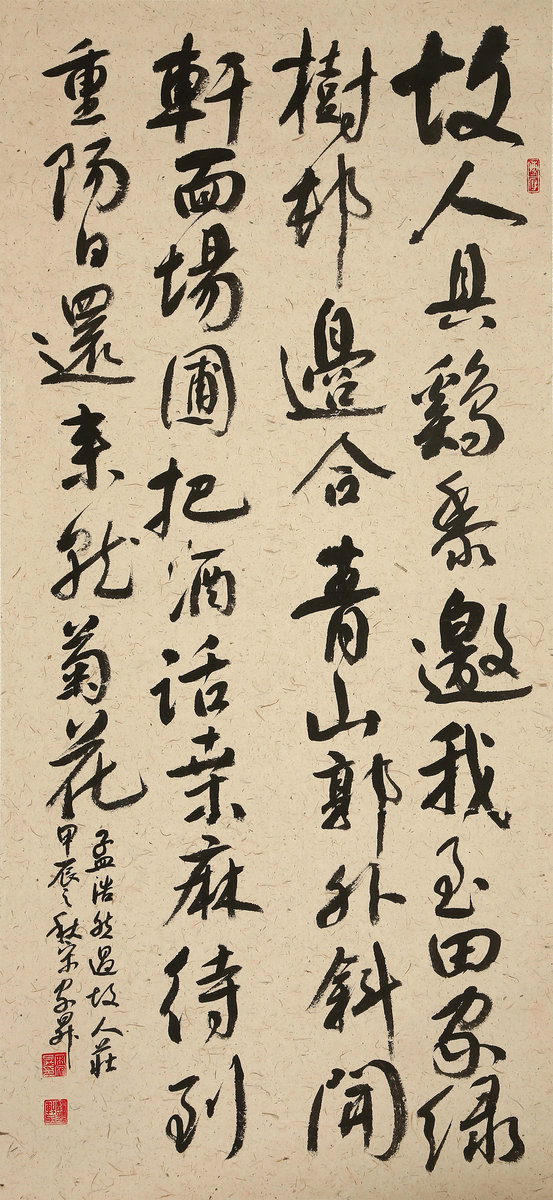 故人具鷄黍邀我至田家绿
樹邨邉合青山郭外斜開
軒面場圃把酒话桒麻待到
重陽日還来就菊花
孟浩然過故人莊
甲辰之秋宋家昇